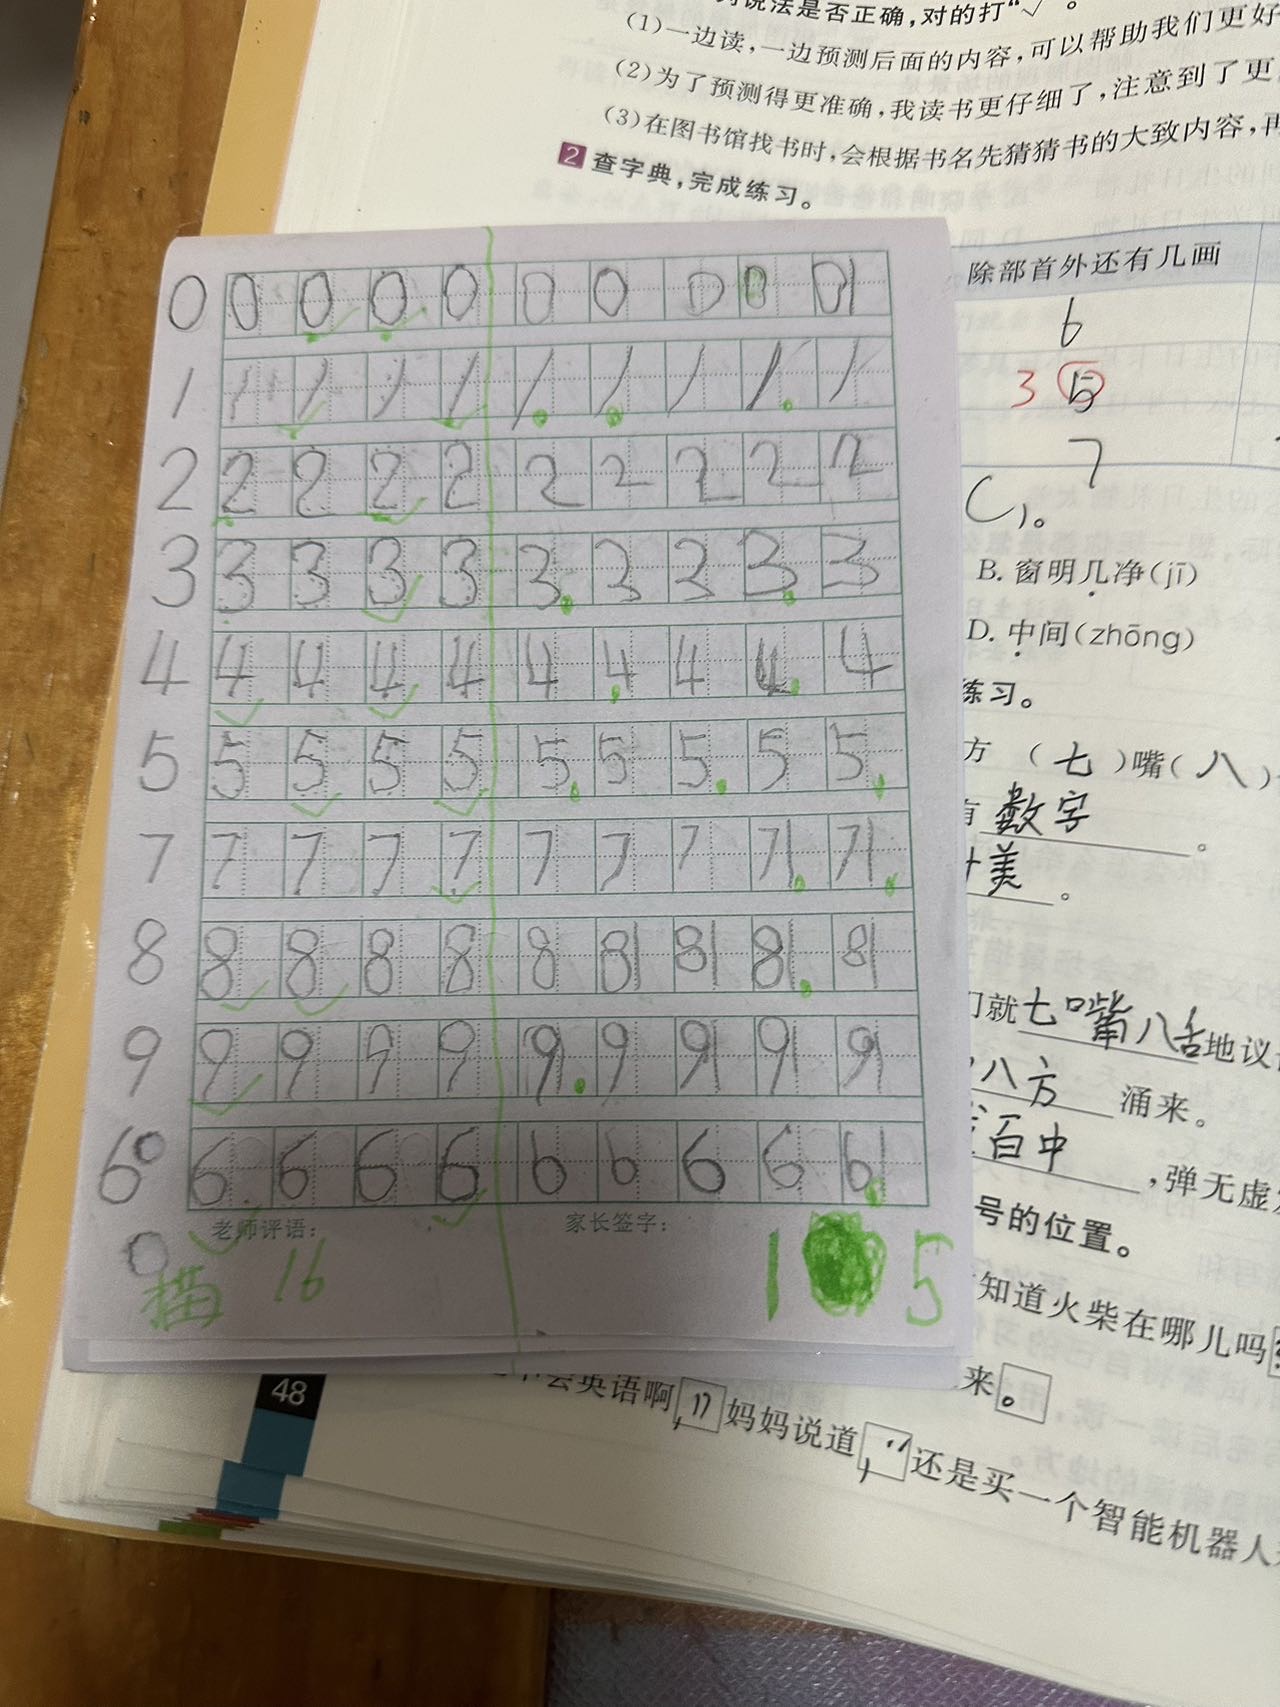 列说法是否正确,对的打“√”。
(1)一边读,一边预测后面的内容,可以帮助我们更好
(2)为了预测得更准确,我读书更仔细了,注意到了更
(3)在图书馆找书时,会根据书名先猜猜书的大致内容,再
2 查字典,完成练习。
除部首外还有几画
6
3 5
7
C )。
B. 窗明几净(jī)
D. 中间(zhōng)
练习。
方 (七)嘴(八)
有 数字 。
十美 。
们就七嘴八舌地议
八方 涌来。
百中 ,弹无虚
号的位置。
知道火柴在哪儿吗
来。
会英语啊,”妈妈说道,“还是买一个智能机器人
48
0 0 0 0 0 0 0 0 0 0
1 1 1 1 1 1 1 1 1 1
2 2 2 2 2 2 2 2 2 2
3 3 3 3 3 3 3 3 3 3
4 4 4 4 4 4 4 4 4 4
5 5 5 5 5 5 5 5 5 5
7 7 7 7 7 7 7 7 7 7
8 8 8 8 8 8 8 8 8 8
9 9 9 9 9 9 9 9 9 9
6 6 6 6 6 6 6 6 6 6
老师评语: 家长签字:
描 16 1 5